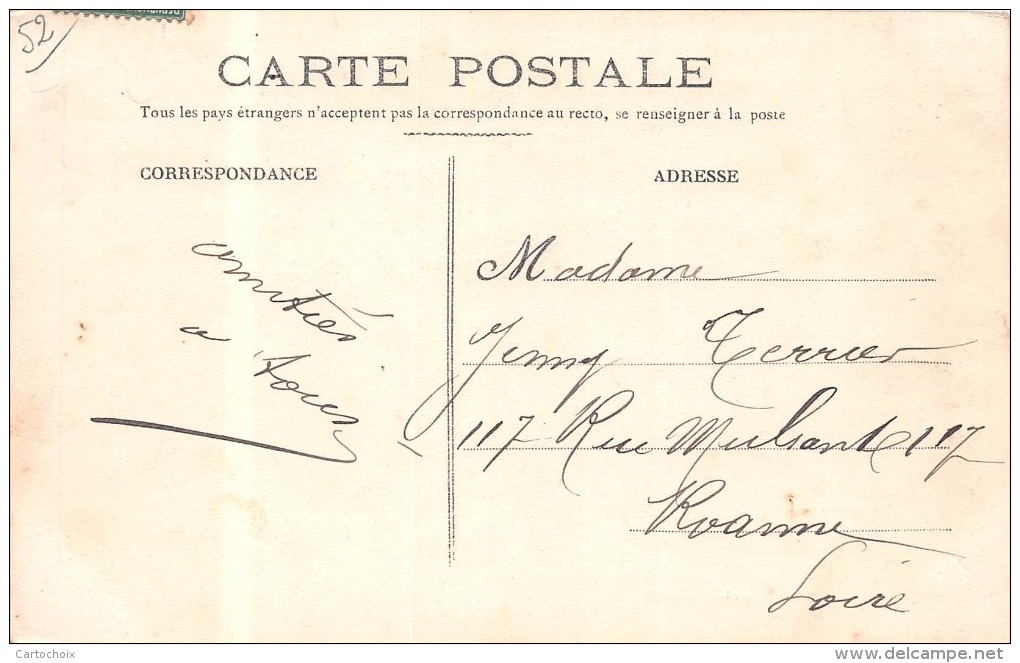 52
CARTE POSTALE
Tous les pays étrangers n'acceptent pas la correspondance au recto, se renseigner à la poste
CORRESPONDANCE
amitiés
a tous
ADRESSE
Madame
Jenny Terrier
117 Rue Mulsant 117
Roanne
Loire
Cartochoix
delcampe.net